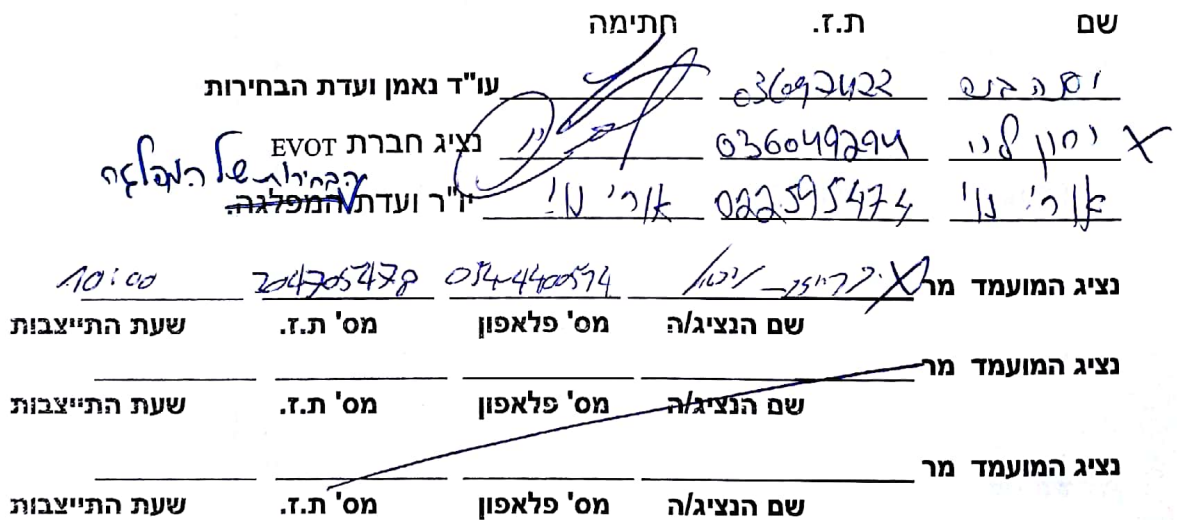 שם ת.ז. חתימה
036092422 עו"ד נאמן ועדת הבחירות
X 036049294 נציג חברת EVOT
הבחירות של המפלגה
אורי נוי 022595474 אורי נוי יו"ר ועדת המפלגה.
נציג המועמד מר 054-4400574 204705478 10:00
שם הנציג/ה מס' פלאפון מס' ת.ז. שעת התייצבות
נציג המועמד מר
שם הנציג/ה מס' פלאפון מס' ת.ז. שעת התייצבות
נציג המועמד מר
שם הנציג/ה מס' פלאפון מס' ת.ז. שעת התייצבות